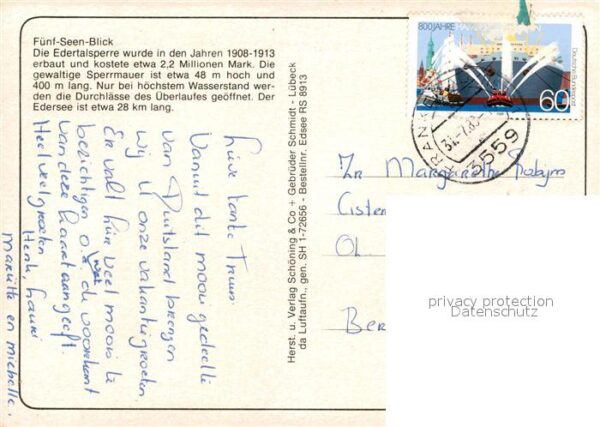 Fünf-Seen-Blick
Die Edertalsperre wurde in den Jahren 1908-1913
erbaut und kostete etwa 2,2 Millionen Mark. Die
gewaltige Sperrmauer ist etwa 48 m hoch und
400 m lang. Nur bei höchstem Wasserstand wer-
den die Durchlässe des Überlaufes geöffnet. Der
Edersee ist etwa 28 km lang.
Lieve tante Truus
Vanuit dit mooi gedeelte
van Duitsland brengen
wij U onze vakantiegroeten.
Er valt hier veel moois te
bezichtigen o.a. wat de voorkant
van deze kaart aangeeft.
Heel veel groeten
Henk,
Mariëtte en michelle.
Herst. u. Verlag Schöning & Co + Gebrüder Schmidt - Lübeck
da Luftaufn., gen. SH 1-72656 - Bestellnr. Edsee RS 8913
800 JAHRE
Deutsche Bundespost
60
FRANK
31.-7.
3559
Margaretha
Cister
Ber
privacy protection
Datenschutz